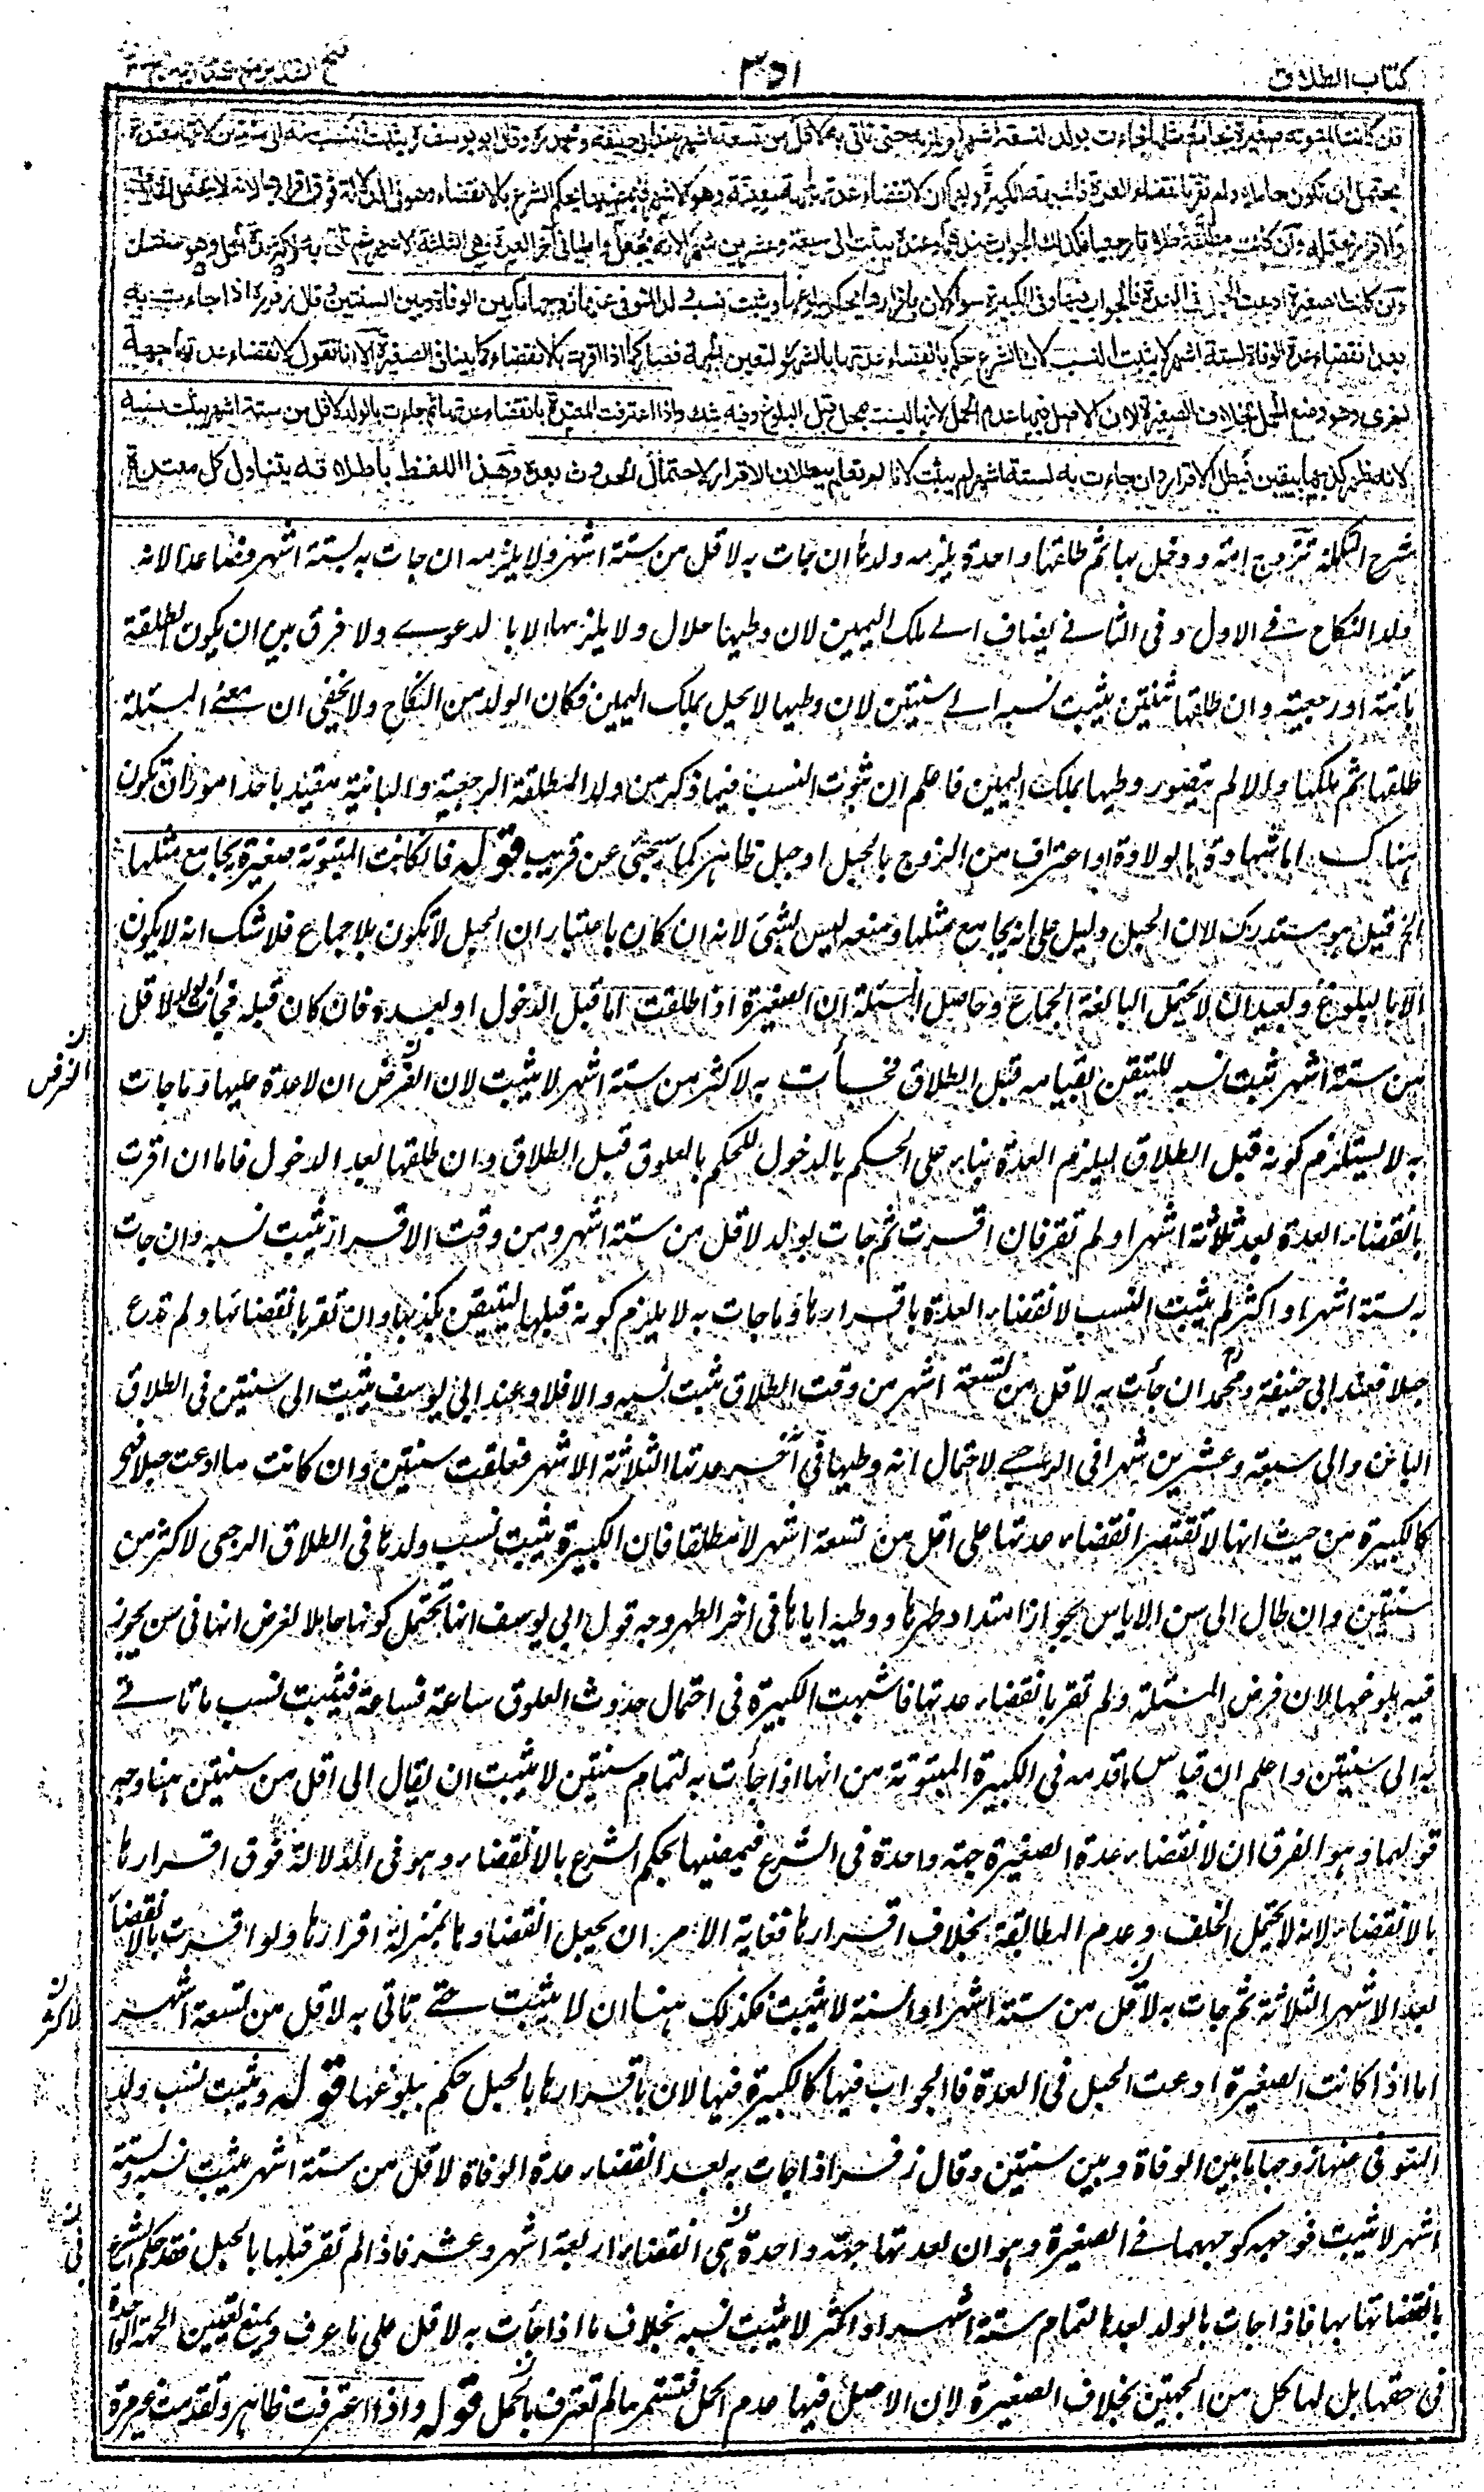 كتاب الطلاق
٣٥١
فتح القدير مع هداية
فان كانت المبتوتة صغيرة يجامع مثلها فجاءت بولد لتسعة اشهر لم يلزمه حتى تأتي به لاقل من تسعة اشهر عند ابي حنيفة ومحمد وقال ابو يوسف يثبت النسب منه الى سنتين لانها معتدة
يحتمل ان تكون حاملا ولم تقر بانقضاء العدة فاشبهت الكبيرة ولهما ان لانقضاء عدتها جهة معينة وهو الاشهر فبمضيها يحكم الشرع بالانقضاء وهو في الدلالة فوق اقرارها لانه لا يحتمل الخلاف
والاقرار يحتمله وان كانت مطلقة طلاقا رجعيا فكذلك الجواب عندهما وعنده يثبت الى سبعة وعشرين شهرا لانه يجعل واطيا في آخر العدة وهي الثلثة الاشهر ثم تأتي به لاكثر مدة الحمل وهو سنتان
وان كانت الصغيرة ادعت الحبل في العدة فالجواب فيها وفي الكبيرة سواء لان باقرارها يحكم ببلوغها ويثبت نسب ولد المتوفى عنها زوجها ما بين الوفاة وبين السنتين وقال زفر اذا جاءت به
بعد انقضاء عدة الوفاة لستة اشهر لا يثبت النسب لان الشرع حكم بانقضاء عدتها بالشهور لتعين الجهة فصار كما اذا اقرت بالانقضاء كما بينا في الصغيرة الا انا نقول لانقضاء عدتها جهة
اخرى وهو وضع الحمل بخلاف الصغيرة لان الاصل فيها عدم الحمل لانها ليست بمحل قبل البلوغ وفيه شك واذا اعترفت المعتدة بانقضاء عدتها ثم جاءت بالولد لاقل من ستة اشهر يثبت نسبه
لانه ظهر كذبها بيقين فبطل الاقرار وان جاءت به لستة اشهر لم يثبت لانا لم نعلم ببطلان الاقرار لاحتمال الحدوث بعده وهذا اللفظ باطلاقه يتناول كل معتدة
شرح التكملة تزوج امة ودخل بها ثم طلقها واحدة يلزمه ولدها ان جات به لاقل من ستة اشهر ولا يلزمه ان جات به لستة اشهر فصاعدا لانه
ولد النكاح في الاول وفي الثاني يضاف الى ملك اليمين لان وطيها حلال ولا يلزمها الا بالدعوى ولا فرق بين ان يكون الطلقة
بائنة او رجعية وان طلقها ثنتين يثبت نسبه الى سنتين لان وطيها لا يحل بملك اليمين فكان الولد من النكاح ولا يخفى ان معنى المسئلة
طلقها ثم ملكها والا لم يتصور وطيها بملك اليمين فاعلم ان ثبوت النسب فيما ذكر من ولد المطلقة الرجعية والبائنة مقيد باحد امور ان تكون
هناك اما شهادة بالولادة او اعتراف من الزوج بالحبل او حبل ظاهر كما سيجئ عن قريب قوله فان كانت المبتوتة صغيرة يجامع مثلها
الخ قيل هو مستدرك لان الحبل دليل على انه يجامع مثلها ومنعه ليس بشئ لانه ان كان باعتبار ان الحبل لا تكون بلا جماع فلا شك انه لا يكون
الا بالبلوغ وبعيد ان لا يحتمل البالغة الجماع وحاصل المسئلة ان الصغيرة اذا طلقت اما قبل الدخول او بعده فان كان قبله فجأت بولد لاقل
من ستة اشهر ثبت نسبه للتيقن بقيامه قبل الطلاق فجأت به لاكثر من ستة اشهر لا يثبت لان الفرض ان لا عدة عليها وما جات
به لا يستلزم كونه قبل الطلاق ليلزم العدة بناء على الحكم بالدخول للحكم بالعلوق قبل الطلاق وان طلقها بعد الدخول فاما ان اقرت
بانقضاء العدة بعد ثلاثة اشهر او لم تقر فان اقرت ثم جات بولد لاقل من ستة اشهر ومن وقت الاقرار يثبت نسبه وان جات
به لستة اشهر او اكثر لم يثبت النسب لانقضاء العدة باقرارها وما جات به لا يلزم كونه قبلها ليتيقن بكذبها وان لم تقر بانقضائها ولم تدع
حبلا فعند ابي حنيفة ومحمد ان جأت به لاقل من تسعة اشهر من وقت الطلاق ثبت نسبه والا فلا وعند ابي يوسف يثبت الى سنتين في الطلاق
البائن والى سبعة وعشرين شهرا في الرجعي لاحتمال انه وطيها في آخر عدتها الثلاثة الاشهر فعلقت سنتين وان كانت ما ادعت حبلا فهي
كالكبيرة من حيث انها لا تقتصر انقضاء عدتها على اقل من تسعة اشهر لا مطلقا فان الكبيرة يثبت نسب ولدها في الطلاق الرجعي لاكثر من
سنتين وان طال الى سن الاياس لجواز امتداد طهرها ووطيه اياها في اخر الطهر وجه قول ابي يوسف انها تحتمل كونها حاملا لغرض انها في سن يجوز
فيه بلوغها لان فرض المسئلة ولم تقر بانقضاء عدتها فاشبهت الكبيرة في احتمال حدوث العلوق ساعة فساعة فيثبت نسب ما تاتي
به الى سنتين واعلم ان قياس ما قدمه في الكبيرة المبتوتة من انها اذا جأت به لتمام سنتين لا يثبت ان يقال الى اقل من سنتين هنا وجه
قولهما وهو الفرق ان لانقضاء عدة الصغيرة جهة واحدة في الشرع فبمضيها يحكم الشرع بالانقضاء وهو في الدلالة فوق اقرارها
بالانقضاء لانه لا يحتمل الخلف وعدم المطابقة بخلاف اقرارها فغاية الامر ان يجعل انقضاوها بمنزلة اقرارها ولو اقرت بالانقضاء
بعد الاشهر الثلاثة ثم جات به لاقل من ستة اشهر او لسنة لا يثبت فكذلك هنا ان لا يثبت حتى تاتي به لاقل من تسعة اشهر
اما اذا كانت الصغيرة ادعت الحبل في العدة فالجواب فيها كالكبيرة فيها لان باقرارها بالحبل حكم ببلوغها قوله ويثبت نسب ولد
المتوفى عنها زوجها ما بين الوفاة وبين سنتين وقال زفر اذا جات به بعد انقضاء عدة الوفاة لاقل من ستة اشهر يثبت نسبه ولستة
اشهر لا يثبت فوجهه كوجههما في الصغيرة وهو ان لعدتها جهة واحدة هي انقضاء اربعة اشهر وعشر فاذا لم تقر قبلها بالحبل فقد حكم الشرع
بانقضائها بها فاذا جات بالولد بعدها لتمام ستة اشهر او اكثر لا يثبت نسبه بخلاف ما اذا جأت به لاقل على ما عرف ويمنع تعيين الجهة الواحدة
في حقها بل لها كل من الجهتين بخلاف الصغيرة لان الاصل فيها عدم الحمل فتستمر ما لم تعترف بالحمل قوله واذا اعترفت ظاهر وتقدمت غير مرة
ن الفرض
ن لاكثر